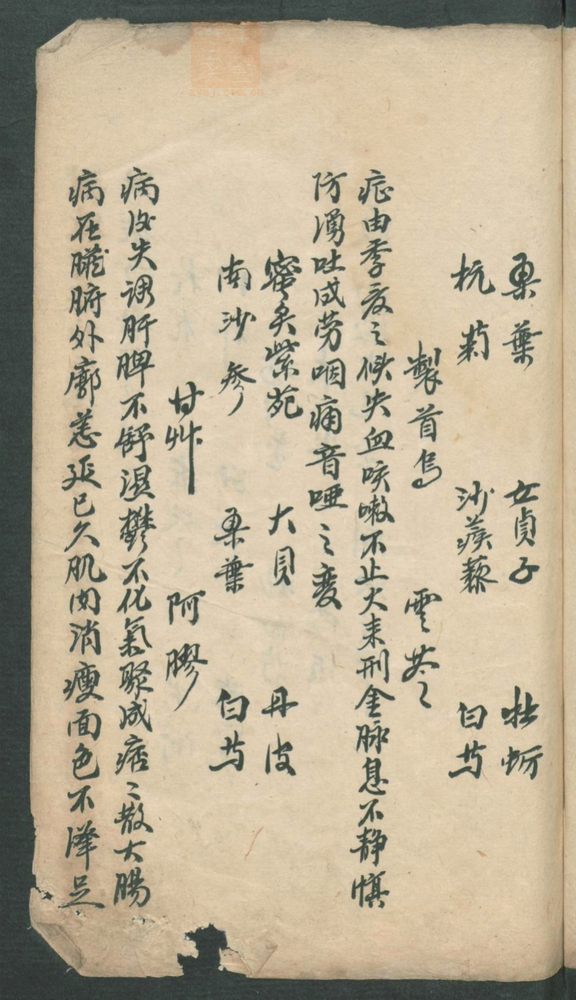 桑葉 女貞子 牡蛎
杭菊 沙蒺藜 白芍
製首烏 雲苓
症由季夏之候失血咳嗽不止火来刑金脉息不静慎
防湧吐成劳咽痛音哑之变
蜜炙紫苑 大貝 丹皮
南沙参 桑葉 白芍
甘艸 阿膠
病后失调肝脾不舒湿鬱不化氣聚成痞〻散大腸
病在臓腑外廓羔延已久肌肉消瘦面色不澤足